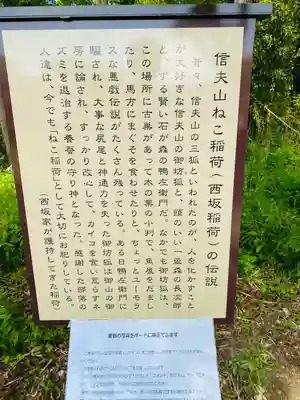 信夫山ねこ稲荷(西坂稲荷)の伝説
昔々、信夫山の三狐といわれたのが、人を化かすこと
が大好きな信夫山の御坊狐と、頭のいい一盃森の長次郎
と、する賢い石が森の鴨左衛門だ。なかでも御坊狐は、
この場所に古巣があって木の葉の小判で、魚屋をだまし
たり、馬方にまぐそを食わせたりと、ちょっとユーモラ
スな悪戯伝説がたくさん残っている。ある日鴨左衛門に
騙され、大事な尻尾と神通力を失った御坊狐は御山の御
房に諭され、すっかり改心して、カイコを食い荒らすネ
ズミを退治する養蚕の守り神となった。感謝した部落の
人達は、今でも「ねこ稲荷」として大切にお祀りしている。
(西坂家が護持してきた稲荷)